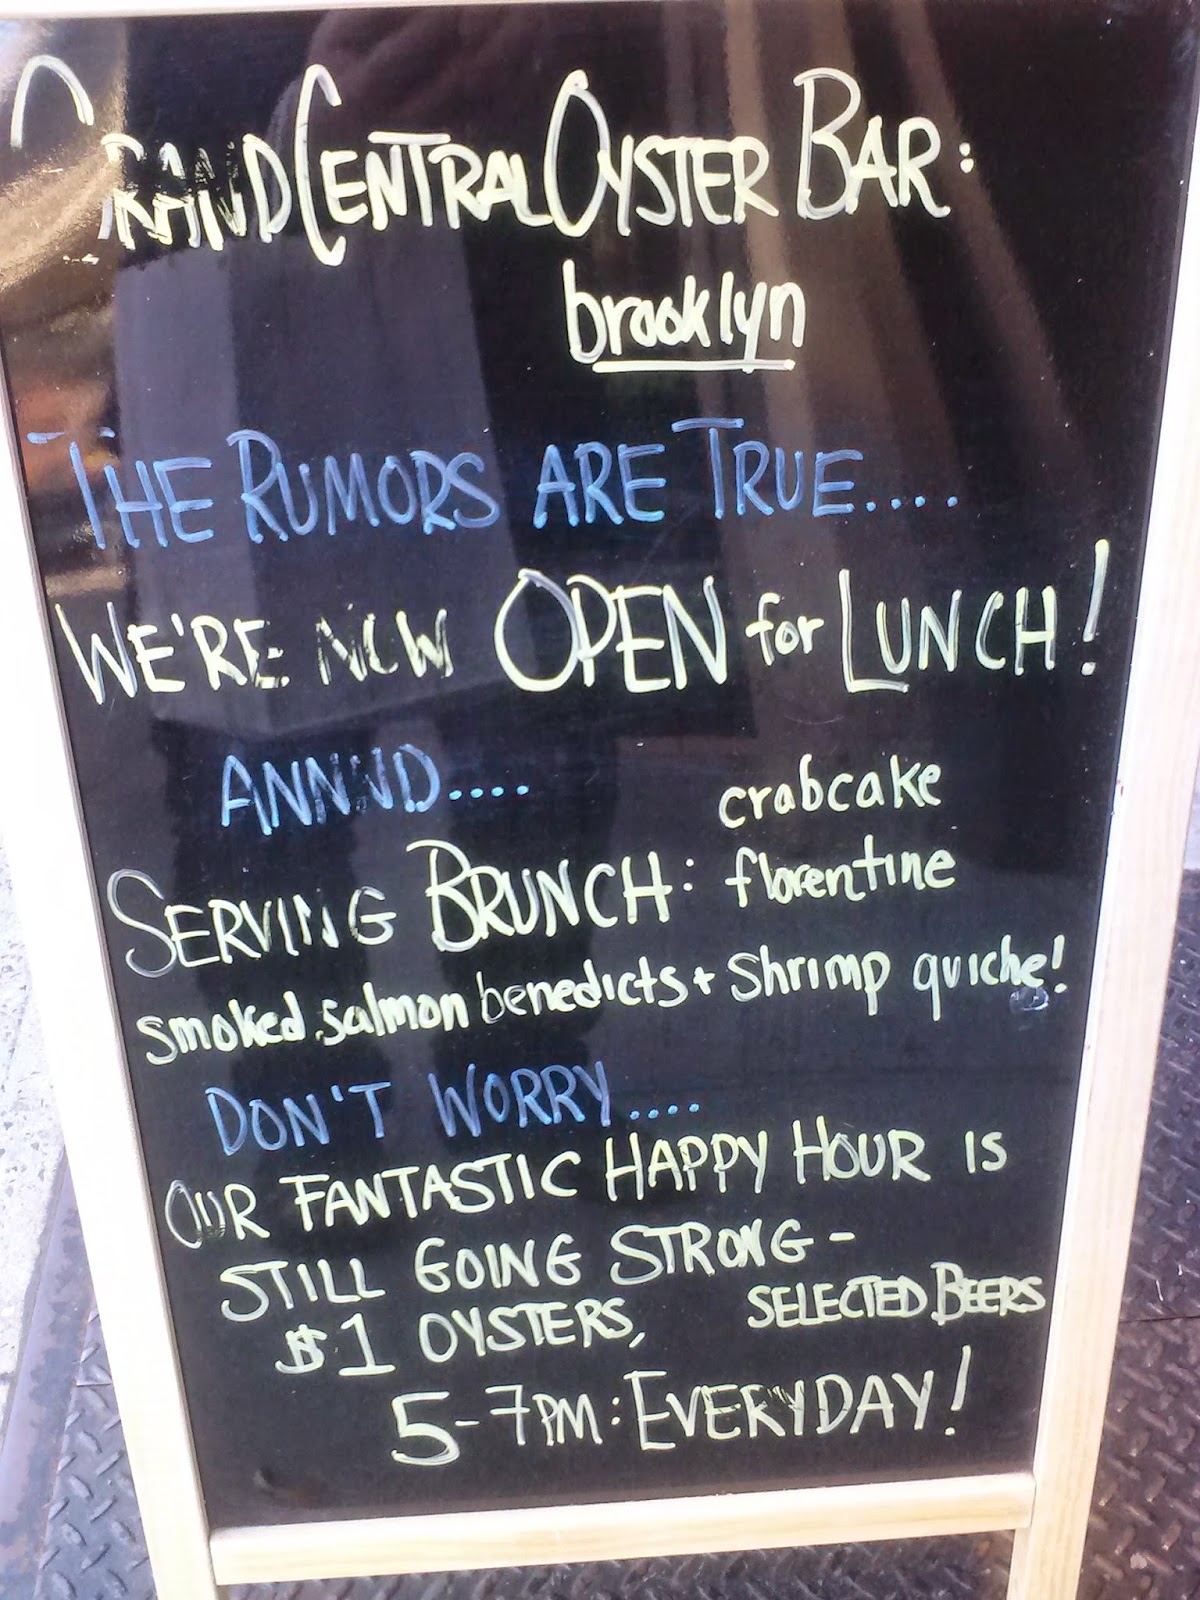 GRAND CENTRAL OYSTER BAR:
brooklyn
THE RUMORS ARE TRUE....
WE'RE NOW OPEN for LUNCH!
ANNNND....
SERVING BRUNCH: crabcake
florentine
smoked salmon benedicts + shrimp quiche!
DON'T WORRY....
OUR FANTASTIC HAPPY HOUR IS
STILL GOING STRONG -
$1 OYSTERS, SELECTED BEERS
5-7PM: EVERYDAY!